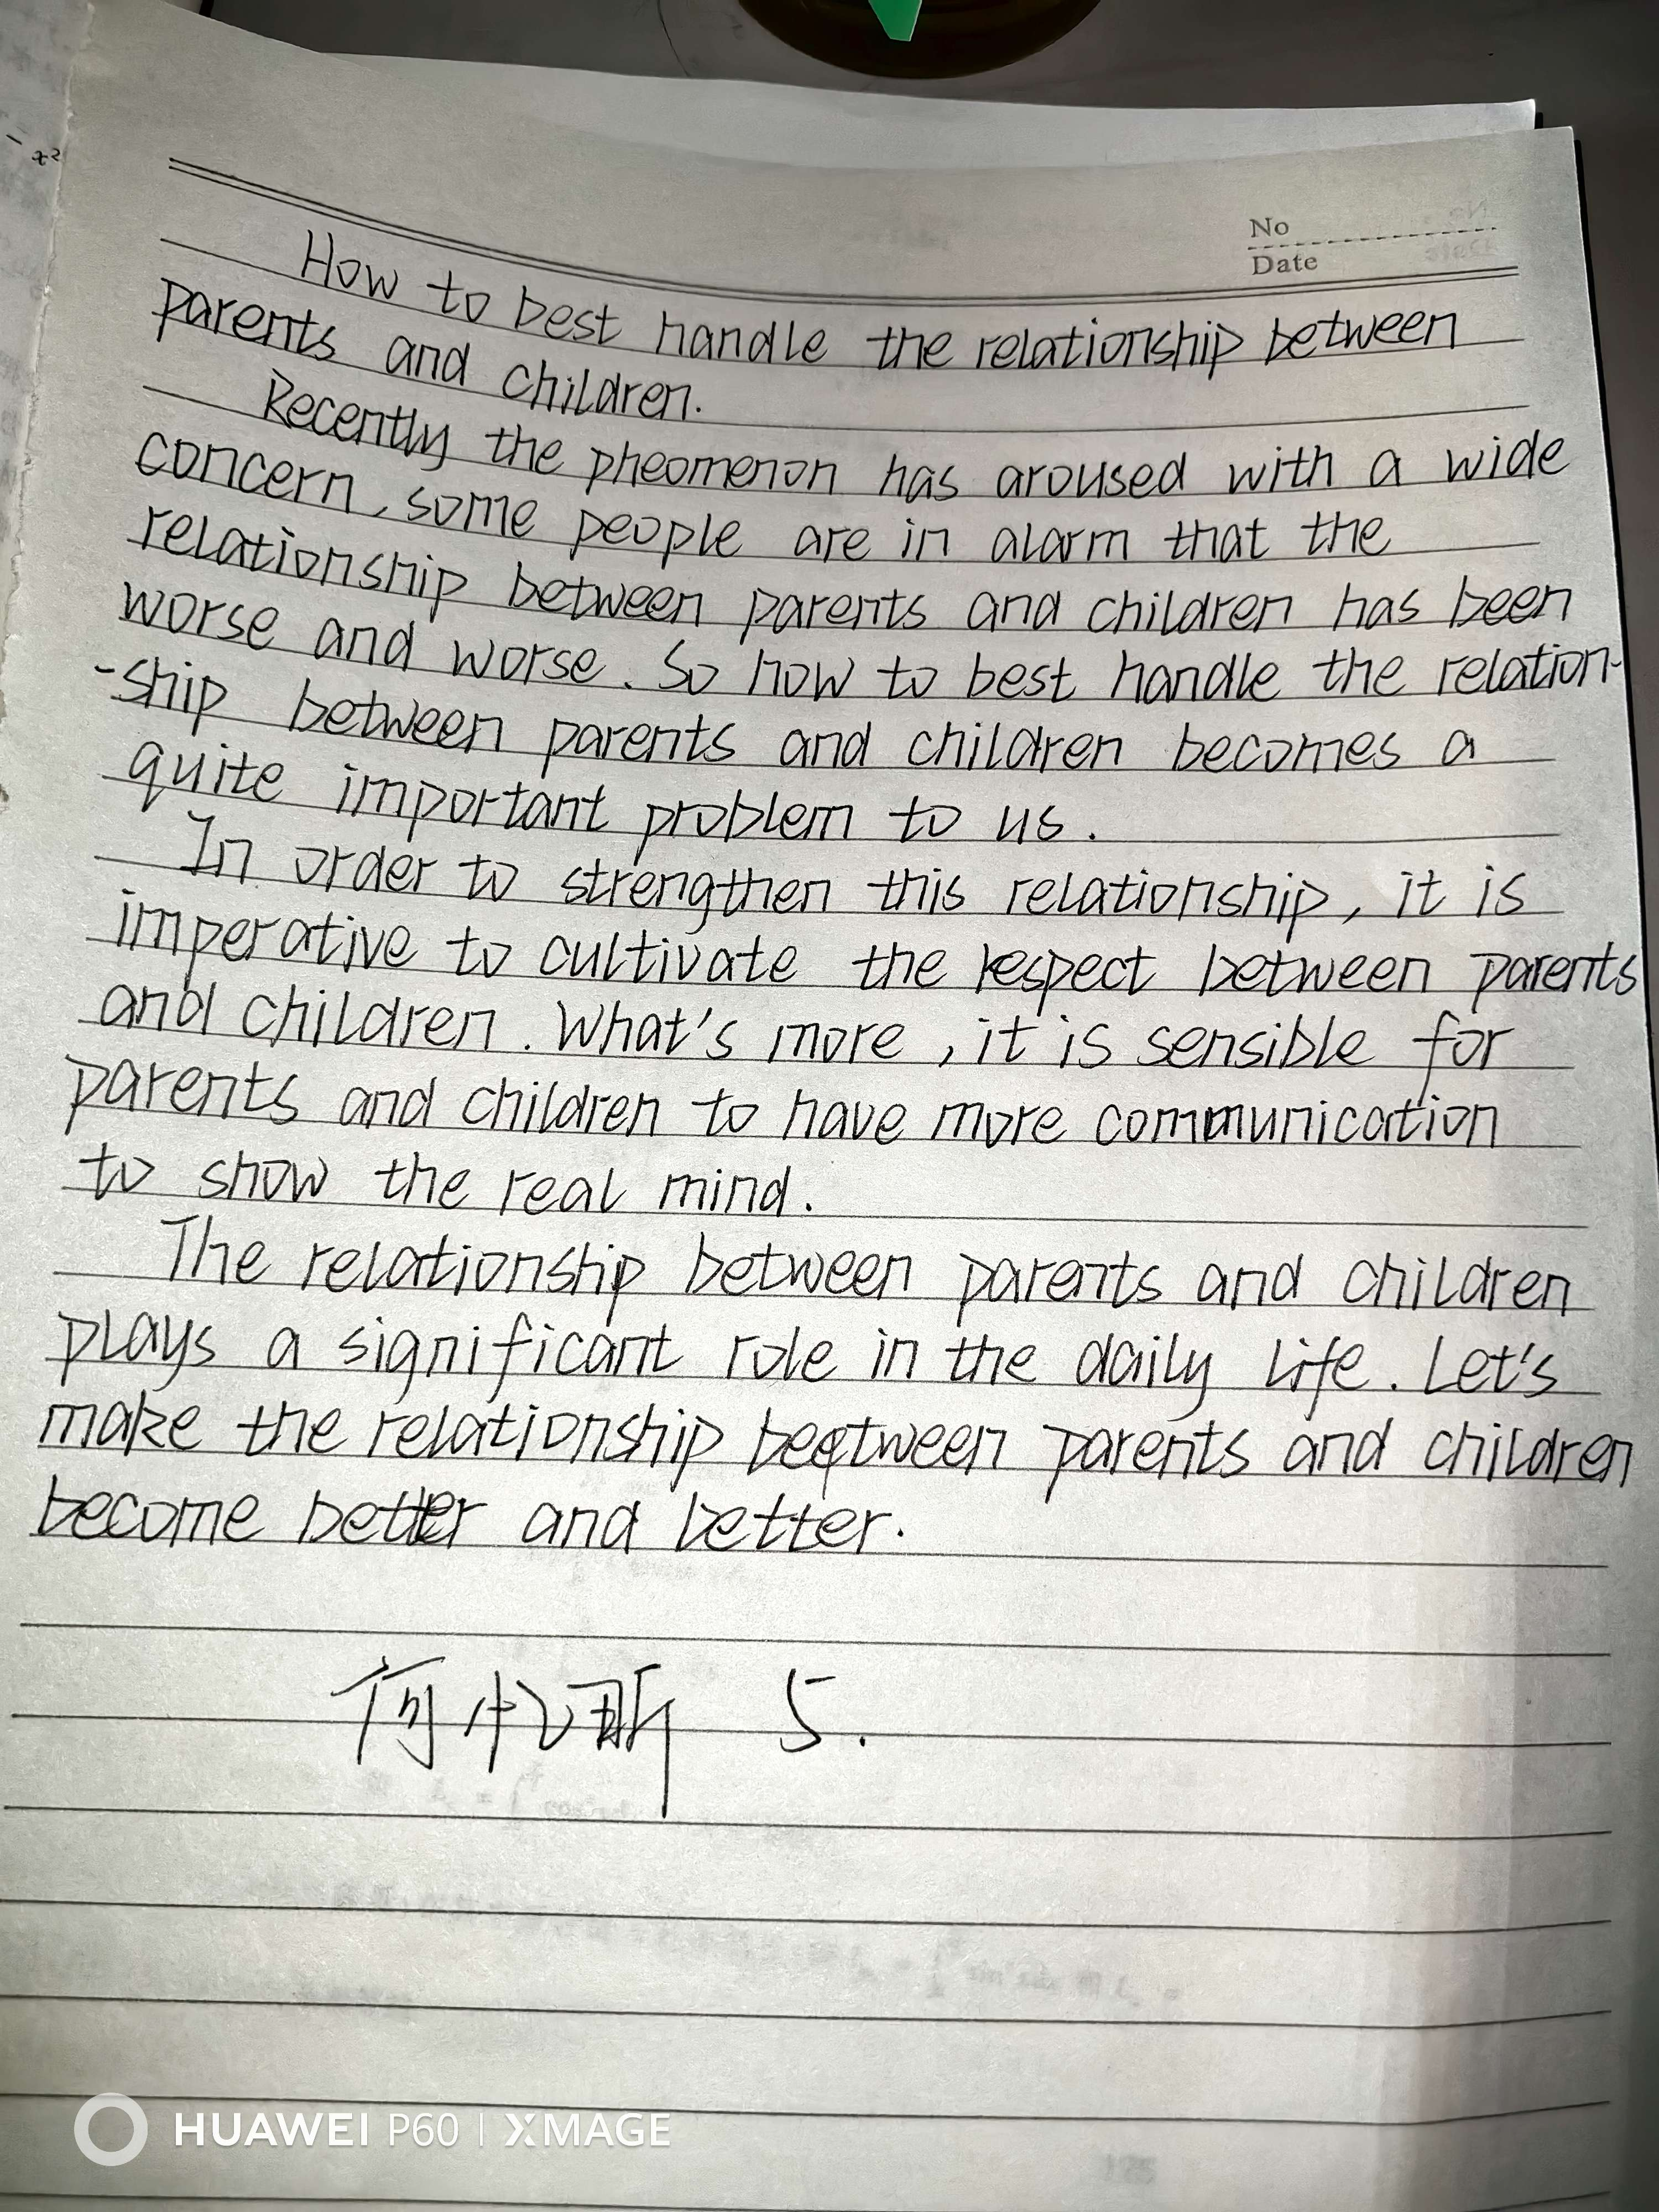 No
Date
How to best handle the relationship between
parents and children.
Recently the pheomenon has aroused with a wide
concern, some people are in alarm that the
relationship between parents and children has been
worse and worse. So how to best handle the relation-
-ship between parents and children becomes a
quite important problem to us.
In order to strengthen this relationship, it is
imperative to cultivate the respect between parents
and children. What's more, it is sensible for
parents and children to have more communication
to show the real mind.
The relationship between parents and children
plays a significant role in the daily life. Let's
make the relationship beetween parents and children
become better and better.
何忆斯 5.
HUAWEI P60 | XMAGE